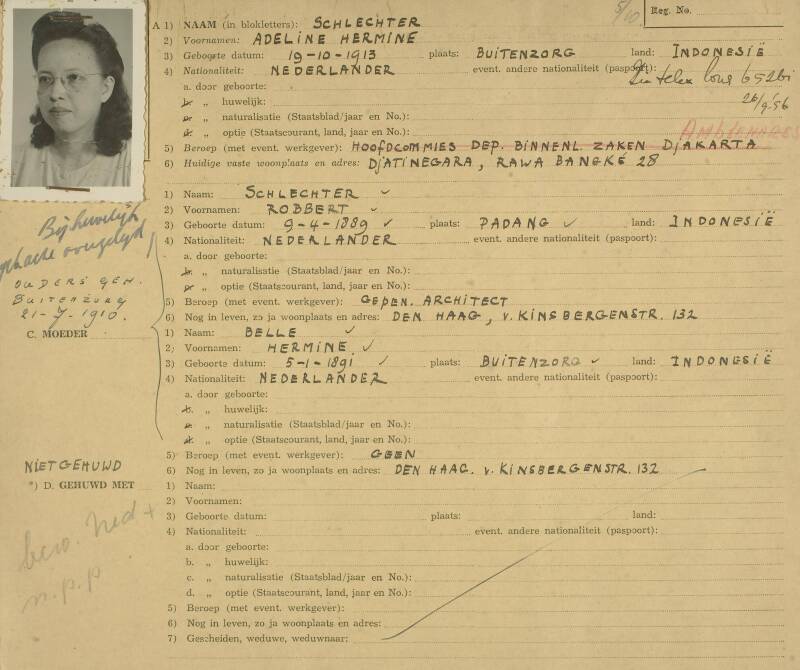 5/10 Reg. No.
A 1) NAAM (in blokletters): SCHLECHTER
2) Voornamen: ADELINE HERMINE
3) Geboorte datum: 19-10-1913 plaats: BUITENZORG land: INDONESIË
4) Nationaliteit: NEDERLANDER event. andere nationaliteit (paspoort):
a. door geboorte:
b. „ huwelijk:
26/9 '56
c. „ naturalisatie (Staatsblad/jaar en No.):
d. „ optie (Staatscourant, land, jaar en No.):
5) Beroep (met event. werkgever): HOOFDCOMMIES DEP. BINNENL. ZAKEN DJAKARTA
6) Huidige vaste woonplaats en adres: DJATINEGARA, RAWA BANGKÉ 28
1) Naam: SCHLECHTER
2) Voornamen: ROBBERT
3) Geboorte datum: 9-4-1889 plaats: PADANG land: INDONESIË
Bij huwelijk
4) Nationaliteit: NEDERLANDER event. andere nationaliteit (paspoort):
a. door geboorte:
b. „ naturalisatie (Staatsblad/jaar en No.):
OUDERS GEH.
c. „ optie (Staatscourant, land, jaar en No.):
BUITENZORG
5) Beroep (met event. werkgever): GEPEN. ARCHITECT
21-7-1910.
6) Nog in leven, zo ja woonplaats en adres: DEN HAAG, v. KINSBERGENSTR. 132
C. MOEDER 1) Naam: BELLE
2) Voornamen: HERMINE
3) Geboorte datum: 5-1-1891 plaats: BUITENZORG land: INDONGSIË
4) Nationaliteit: NEDERLANDER event. andere nationaliteit (paspoort):
a. door geboorte:
b. „ huwelijk:
c. „ naturalisatie (Staatsblad/jaar en No.):
d. „ optie (Staatscourant, land, jaar en No.):
5) Beroep (met event. werkgever): GEEN
NIET GEHUWD
6) Nog in leven, zo ja woonplaats en adres: DEN HAAG. v. KINSBERGENSTR. 132
*) D. GEHUWD MET 1) Naam:
2) Voornamen:
3) Geboorte datum: plaats: land:
4) Nationaliteit: event. andere nationaliteit (paspoort):
bew. Ned +
n.p.p.
a. door geboorte:
b. „ huwelijk:
c. „ naturalisatie (Staatsblad/jaar en No.):
d. „ optie (Staatscourant, land, jaar en No.):
5) Beroep (met event. werkgever):
6) Nog in leven, zo ja woonplaats en adres:
7) Gescheiden, weduwe, weduwnaar: